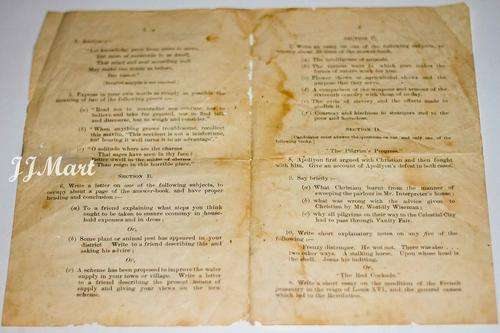 "Let knowledge grow from more to more,
But more of reverence in us dwell,
That mind and soul according well
May make one music as before,
But vaster."
5. Express in your own words as simply as possible the
meaning of two of the following passages:—
(a) "Read not to contradict nor confute, nor to
believe and take for granted, nor to find talk
and discourse, but to weigh and consider."
(b) "When anything grows troublesome, recollect
this maxim, 'This accident is not a misfortune,
for bearing it well turns it to an advantage.'
(c) "O solitude where are the charms
That sages have seen in thy face?
Better dwell in the midst of alarms
Than reign in this horrible place."
SECTION B.
6. Write a letter on one of the following subjects, to
occupy about a page of the answer-book, and have proper
heading and conclusion:—
(a) To a friend explaining what steps you think
ought to be taken to ensure economy in house-
hold expenses and in dress;
Or,
(b) Some plant or animal pest has appeared in your
district. Write to a friend describing this and
asking his advice;
Or,
(c) A scheme has been proposed to improve the water
supply in your town or village. Write a letter
to a friend describing the present means of
supply and giving your views on the new
scheme.
SECTION C.
7. Write an essay on one of the following subjects, to
occupy about 30 lines of the answer-book.
(a) The intelligence of animals.
(b) The various ways in which man makes the
forces of nature work for him.
(c) Flower shows or agricultural shows and the
purpose they serve.
(d) A comparison of the weapons and armour of the
sixteenth century with those of to-day.
(e) The evils of slavery and the efforts made to
abolish it.
(f) Courtesy and kindness to strangers and to the
poor and
SECTION D.
"The Pilgrim's Progress."
8. Apollyon first argued with Christian and then fought
with him. Give an account of Apollyon's defeat in both cases.
9. Say briefly:—
(a) What Christian learnt from the manner of
sweeping the parlour in Mr. Interpreter's house;
(b) what was wrong with the advice given to
Christian by Mr. Worldly Wiseman;
(c) why all pilgrims on their way to the Celestial City
had to pass through Vanity Fair.
10. Write short explanatory notes on any five of
the following:—
Frenzy distemper. He wot not. There was also
two other ways. A stalking horse. Upon whose head is
the shell. Jonas his initing.
Or,
"The Red Cockade."
8. Write a short essay on the condition of the French
peasantry in the reign of Louis XVI, and the general causes
which led to the Revolution.
JJMart